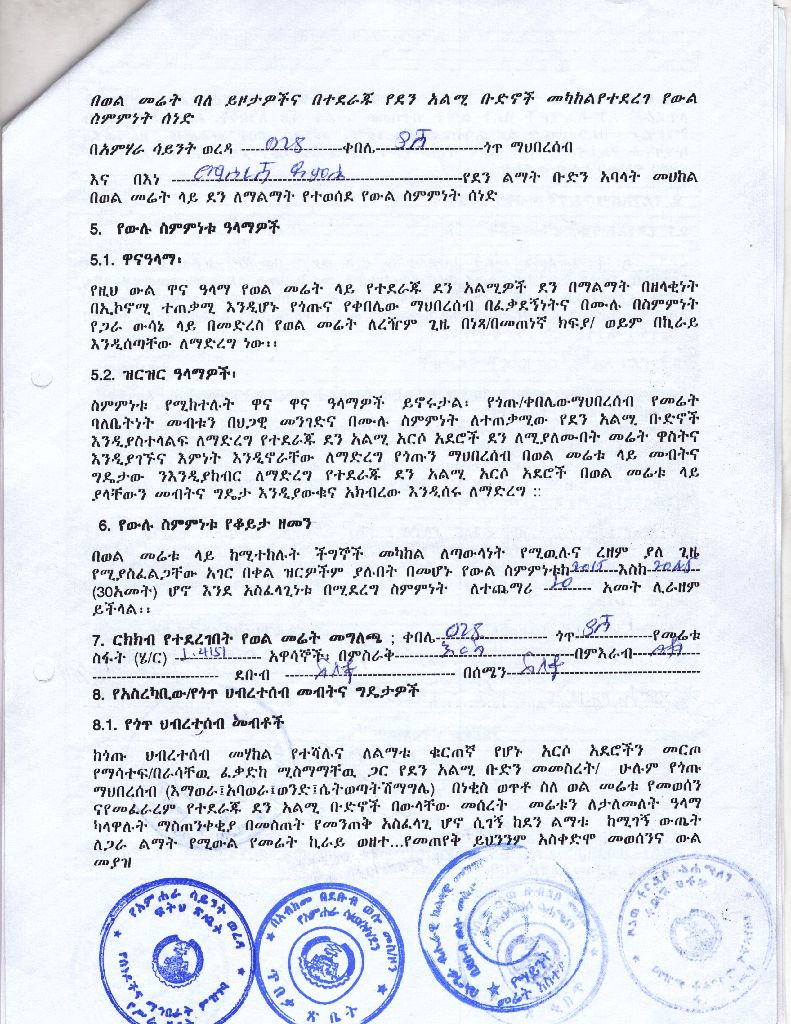 በወል መሬት ባለ ይዞታዎችና በተደራጁ የደን አልሚ ቡድኖች መካከልየተደረገ የውል
ስምምነት ሰነድ
በአምሃራ ሳይንት ወረዳ ------------------ቀበሌ---------------------ጎጥ ማህበረሰብ
እና በእነ ------------------------------------------የደን ልማት ቡድን አባላት መሀከል
በወል መሬት ላይ ደን ለማልማት የተወሰደ የውል ስምምነት ሰነድ
5. የውሉ ስምምነቱ ዓላማዎች
5.1. ዋናዓላማ፡
የዚህ ውል ዋና ዓላማ የወል መሬት ላይ የተደራጁ ደን አልሚዎች ደን በማልማት በዘላቂነት
በኢኮኖሚ ተጠቃሚ እንዲሆኑ የጎጡና የቀበሌው ማህበረሰብ በፈቃደኝነትና በሙሉ በስምምነት
የጋራ ውሳኔ ላይ በመድረስ የወል መሬት ለረዥም ጊዜ በነጻ/በመጠነኛ ክፍያ/ ወይም በኪራይ
እንዲሰጣቸው ለማድረግ ነው፡፡
5.2. ዝርዝር ዓላማዎች፡
ስምምነቱ የሚከተሉት ዋና ዋና ዓላማዎች ይኖሩታል፡ የጎጡ/ቀበሌውማህበረሰብ የመሬት
ባለቤትነት መብቱን በህጋዊ መንገድና በሙሉ ስምምነት ለተጠቃሚው የደን አልሚ ቡድኖች
እንዲያስተላልፍ ለማድረግ የተደራጁ ደን አልሚ አርሶ አደሮች ደን ለሚያለሙበት መሬት ዋስትና
እንዲያገኙና እምነት እንዲኖራቸው ለማድረግ የጎጡን ማህበረሰብ በወል መሬቱ ላይ መብትና
ግዴታው ንእንዲያከብር ለማድረግ የተደራጁ ደን አልሚ አርሶ አደሮች በወል መሬቱ ላይ
ያላቸውን መብትና ግዴታ እንዲያውቁና አክብረው እንዲሰሩ ለማድረግ ::
6. የውሉ ስምምነቱ የቆይታ ዘመን
በወል መሬቱ ላይ ከሚተከሉት ችግኞች መካከል ለጣውላነት የሚዉሉና ረዘም ያለ ጊዜ
የሚያስፈልጋቸው አገር በቀል ዝርዎችም ያሉበት በመሆኑ የውል ስምምነቱከ 2015 እስከ 2045
(30አመት) ሆኖ እንደ አስፈላጊነቱ በሚደረግ ስምምነት ለተጨማሪ --- አመት ሊራዘም
ይችላል፡፡
7. ርክክብ የተደረገበት የወል መሬት መግለጫ ; ቀበሌ------------------ ጎጥ---------የመሬቱ
ስፋት (ሄ/ር) 1.4151 አዋሳኞች፡ በምስራቅ------------------በምእራብ------
---------- ደቡብ -------------------- በሰሜን------------------
8. የአስረካቢው/የጎጥ ህብረተሰብ መብትና ግዴታዎች
8.1. የጎጥ ህብረተሰብ መብቶች
ከጎጡ ህብረተሰብ መሃከል የተሻሉና ለልማቱ ቁርጠኛ የሆኑ አርሶ አደሮችን መርጦ
የማሳተፍ/በራሳቸዉ ፈቃድከ ሚስማማቸዉ ጋር የደን አልሚ ቡድን መመስረት/ ሁሉም የጎጡ
ማህበረሰብ (እማወራ፤አባወራ፤ወንድ፤ሴትወጣትሽማግሌ) በነቂስ ወጥቶ ስለ ወል መሬቱ የመወሰን
ናየመፈራረም የተደራጁ ደን አልሚ ቡድኖች በውላቸው መሰረት መሬቱን ለታለመለት ዓላማ
ካላዋሉት ማስጠንቀቂያ በመስጠት የመንጠቅ አስፈላጊ ሆኖ ሲገኝ ከደን ልማቱ ከሚገኝ ውጤት
ለጋራ ልማት የሚውል የመሬት ኪራይ ወዘተ...የመጠየቅ ይህንንም አስቀድሞ መወሰንና ውል
መያዝ
የአምሐራ ሳይንት ወረዳ
ፍትህ ጽ/ቤት